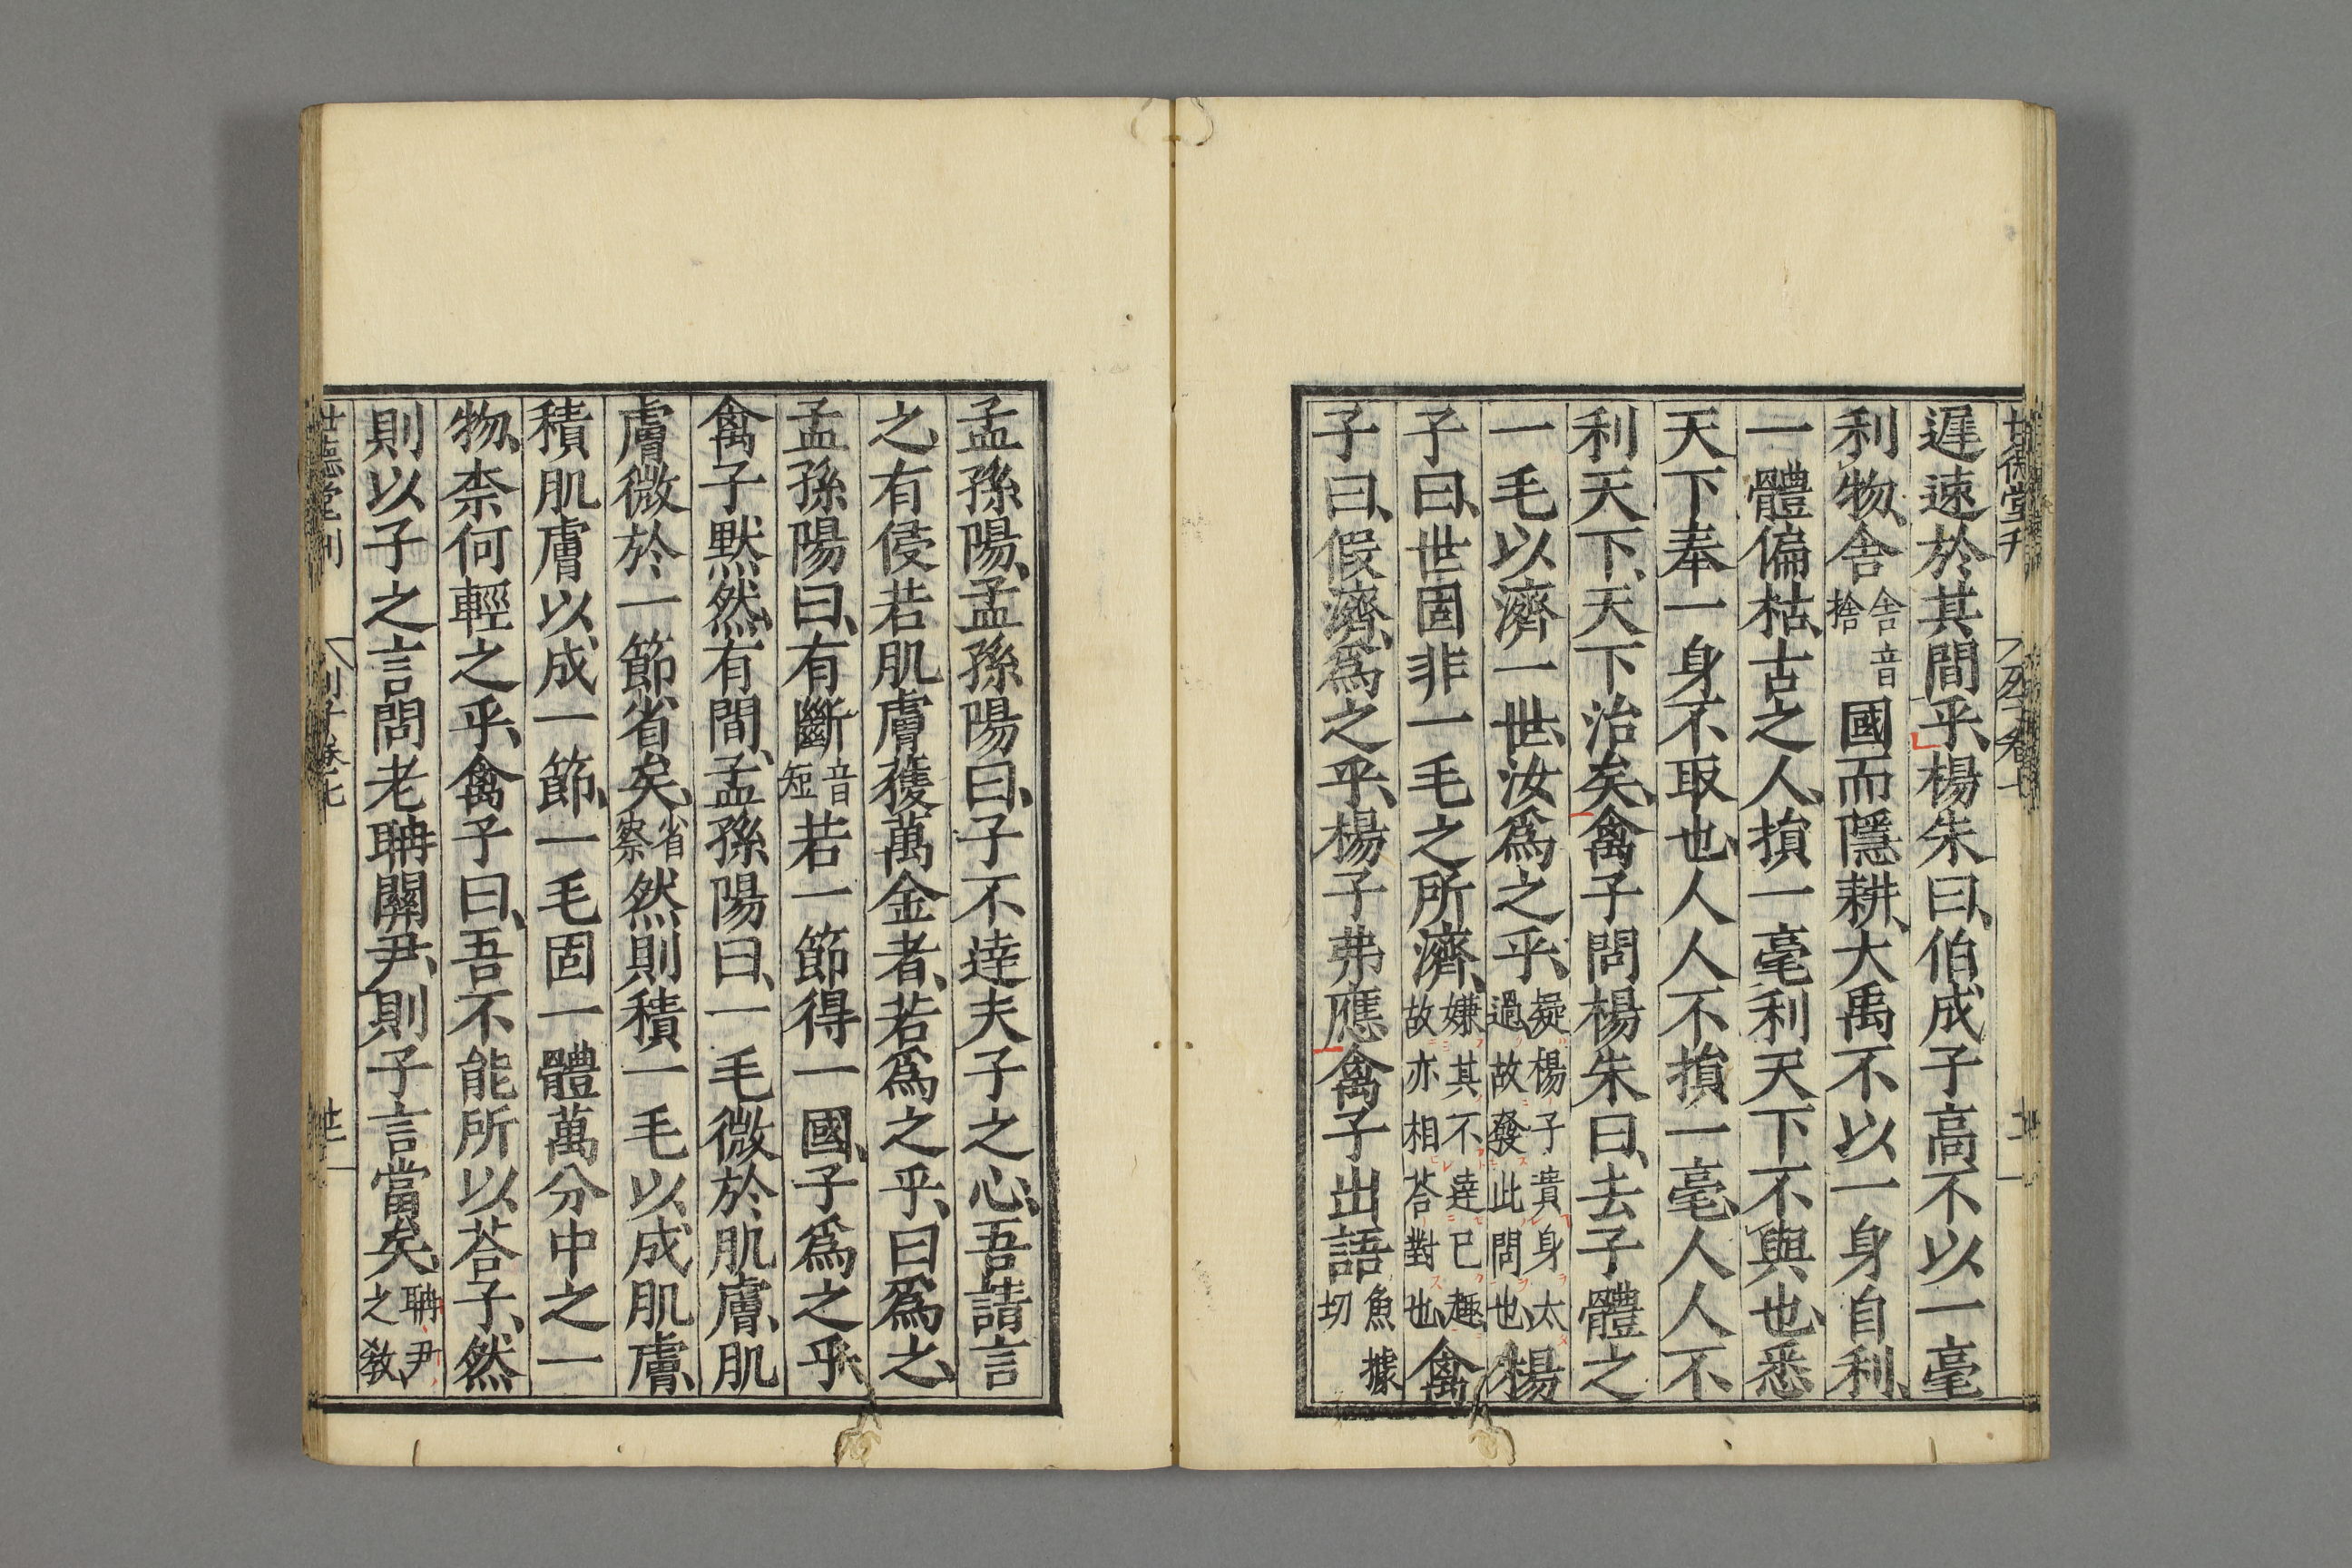 遲速於其間乎、楊朱曰、伯成子高不以一毫
利物、舍舍音捨國而隱耕、大禹不以一身自利、
一體偏枯、古之人、損一毫利天下不與也、悉
天下奉一身不取也、人人不損一毫、人人不
利天下、天下治矣、禽子問楊朱曰、去子體之
一毛以濟一世、汝爲之乎、疑楊子貴身太過、故發此問也、楊
子曰、世固非一毛之所濟、嫌其不達己趣故亦相荅對也、禽
子曰、假濟、爲之乎、楊子弗應、禽子出語魚據切
孟孫陽、孟孫陽曰、子不達夫子之心、吾請言
之、有侵若肌膚獲萬金者、若爲之乎、曰爲之、
孟孫陽曰、有斷音短若一節得一國、子爲之乎、
禽子默然、有間、孟孫陽曰、一毛微於肌膚、肌
膚微於一節、省矣、省察然則積一毛以成肌膚、
積肌膚以成一節、一毛固一體萬分中之一
物、柰何輕之乎、禽子曰、吾不能所以荅子、然
則以子之言問老聃關尹、則子言當矣、聃、尹之敎
世德堂刊 列子卷七